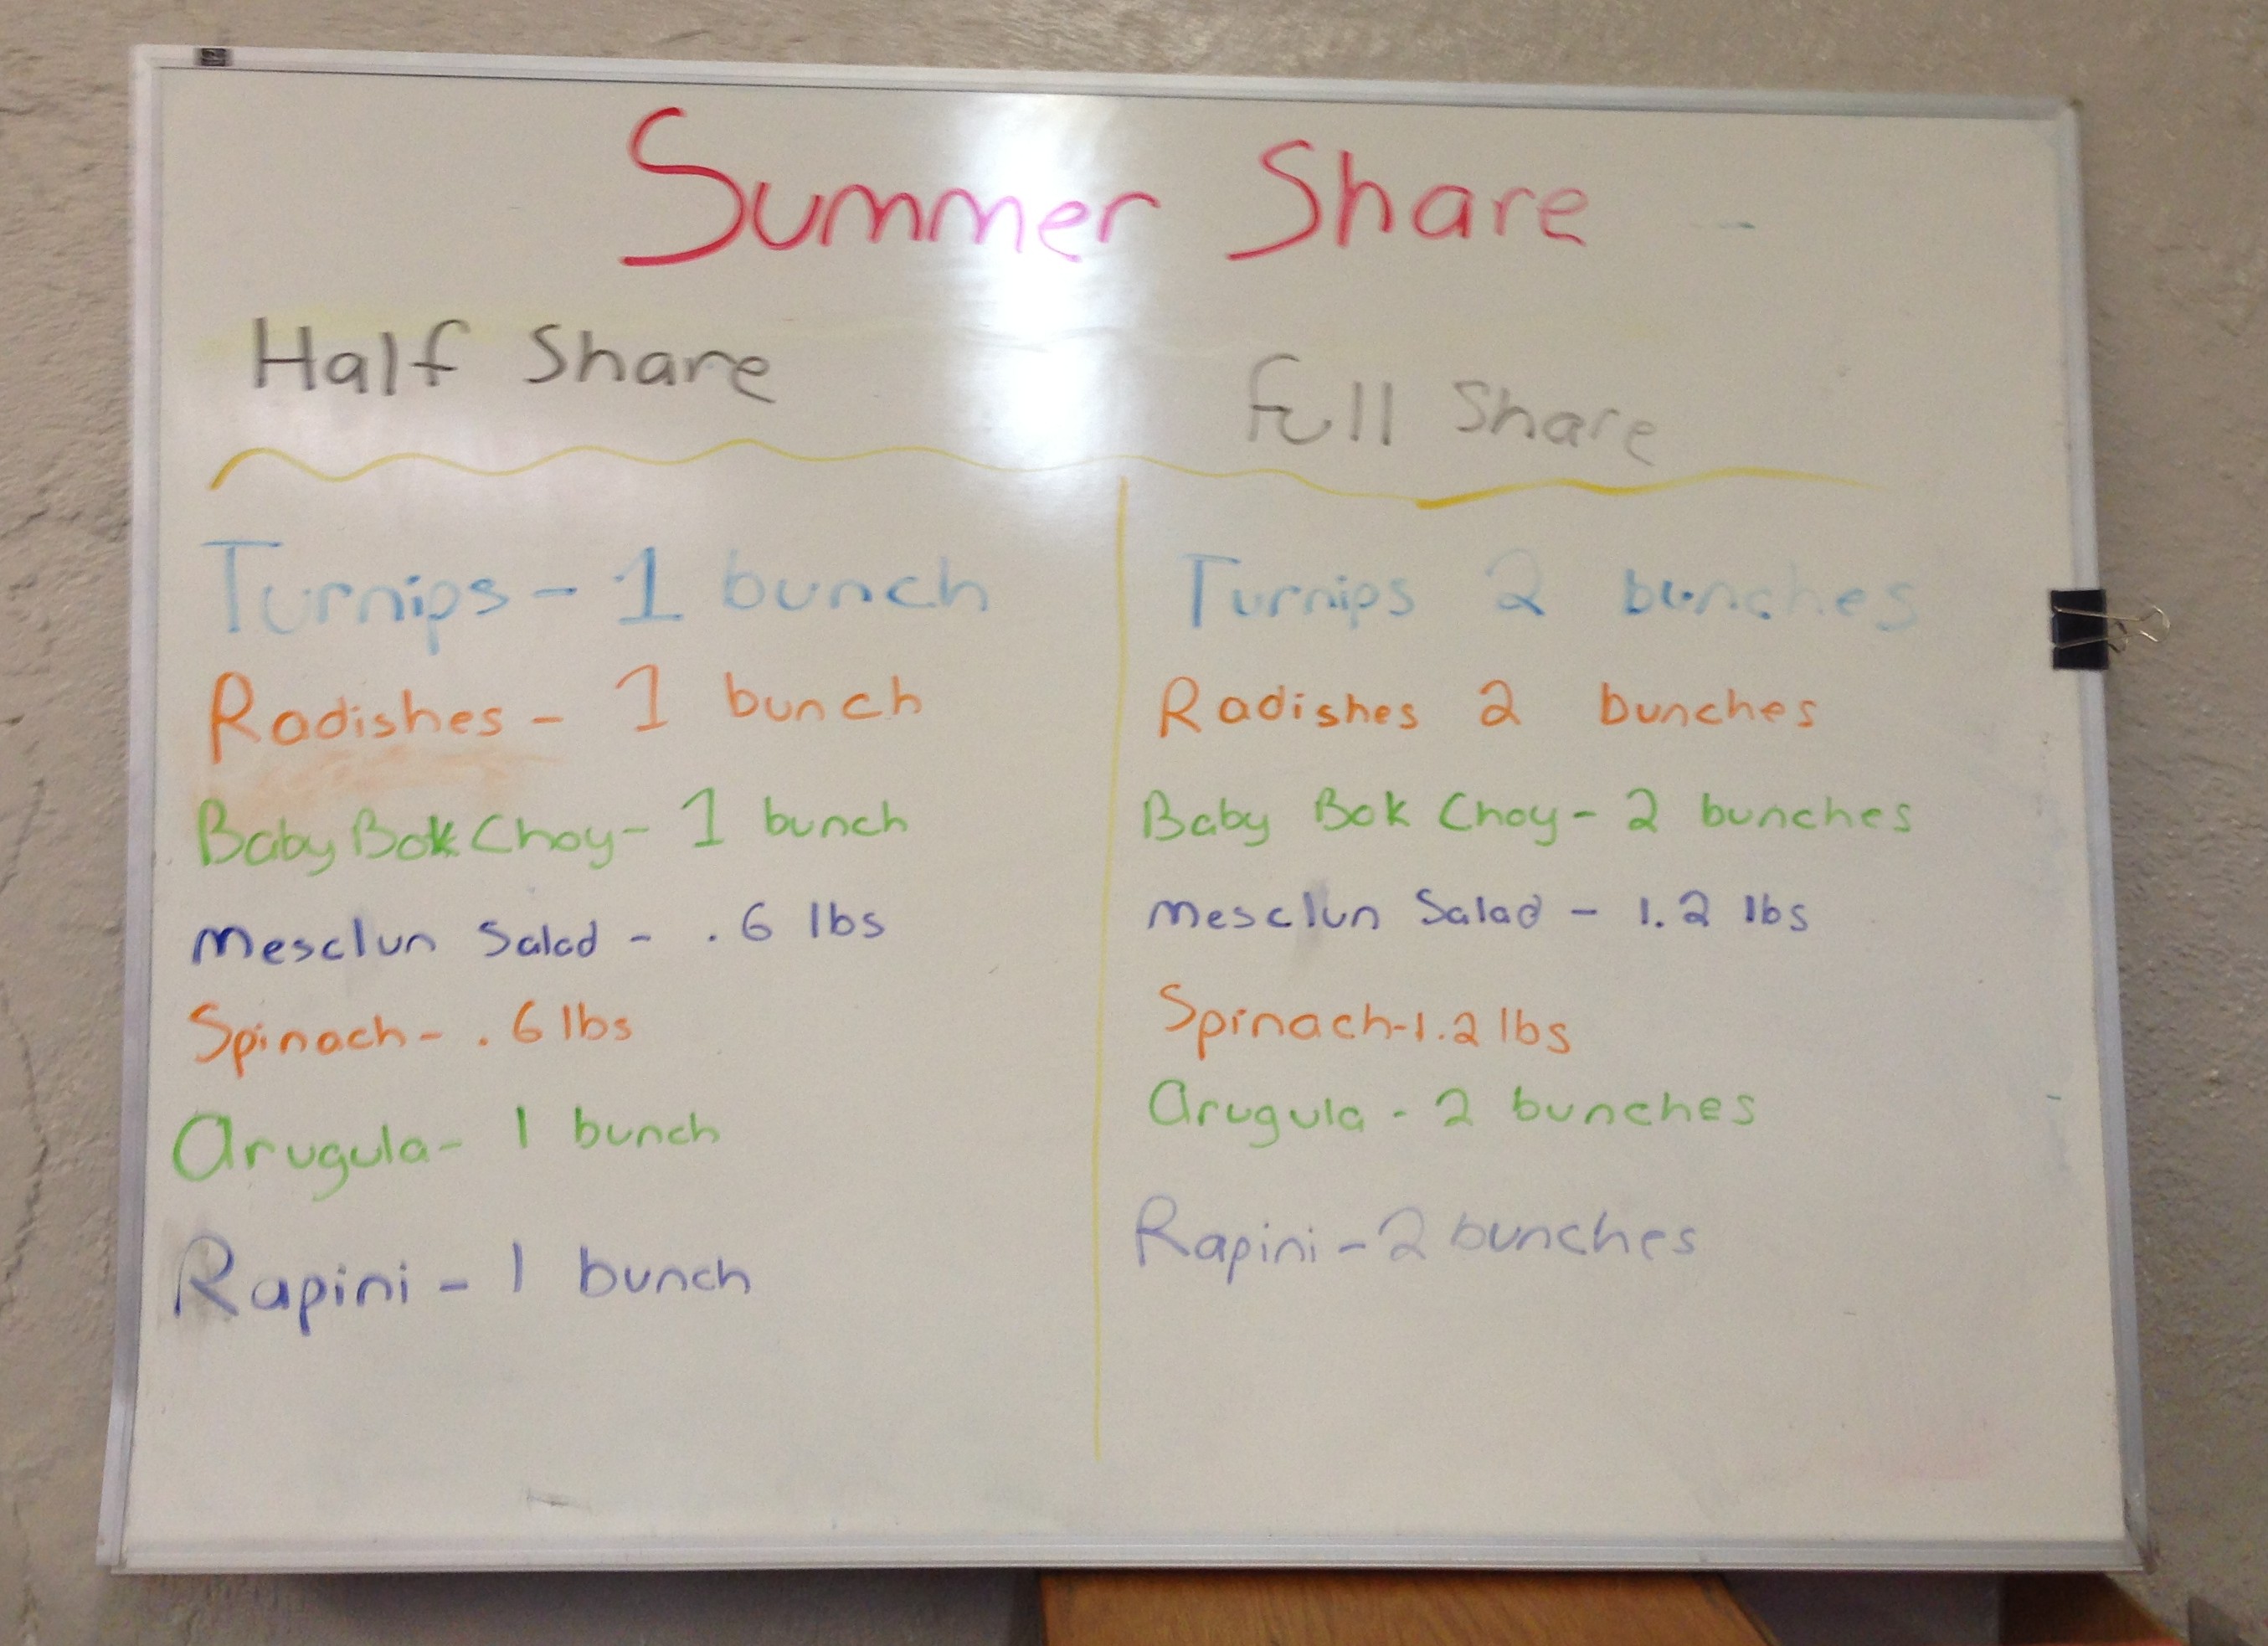 Summer Share
Half Share
Turnips - 1 bunch
Radishes - 1 bunch
Baby Bok Choy - 1 bunch
Mesclun Salad - .6 lbs
Spinach - .6 lbs
Arugula - 1 bunch
Rapini - 1 bunch
Full Share
Turnips 2 bunches
Radishes 2 bunches
Baby Bok Choy - 2 bunches
Mesclun Salad - 1.2 lbs
Spinach - 1.2 lbs
Arugula - 2 bunches
Rapini - 2 bunches